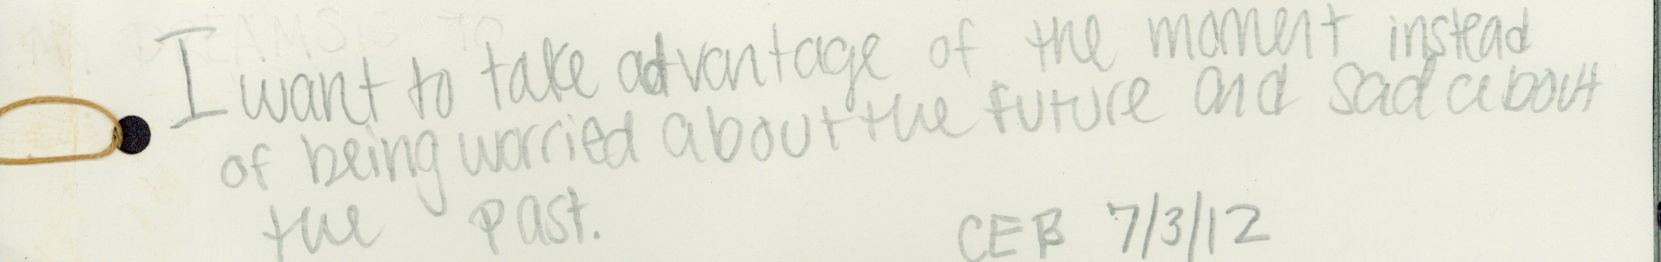 I want to take advantage of the moment instead
of being worried about the future and sad about
the past.
CEB 7/3/12